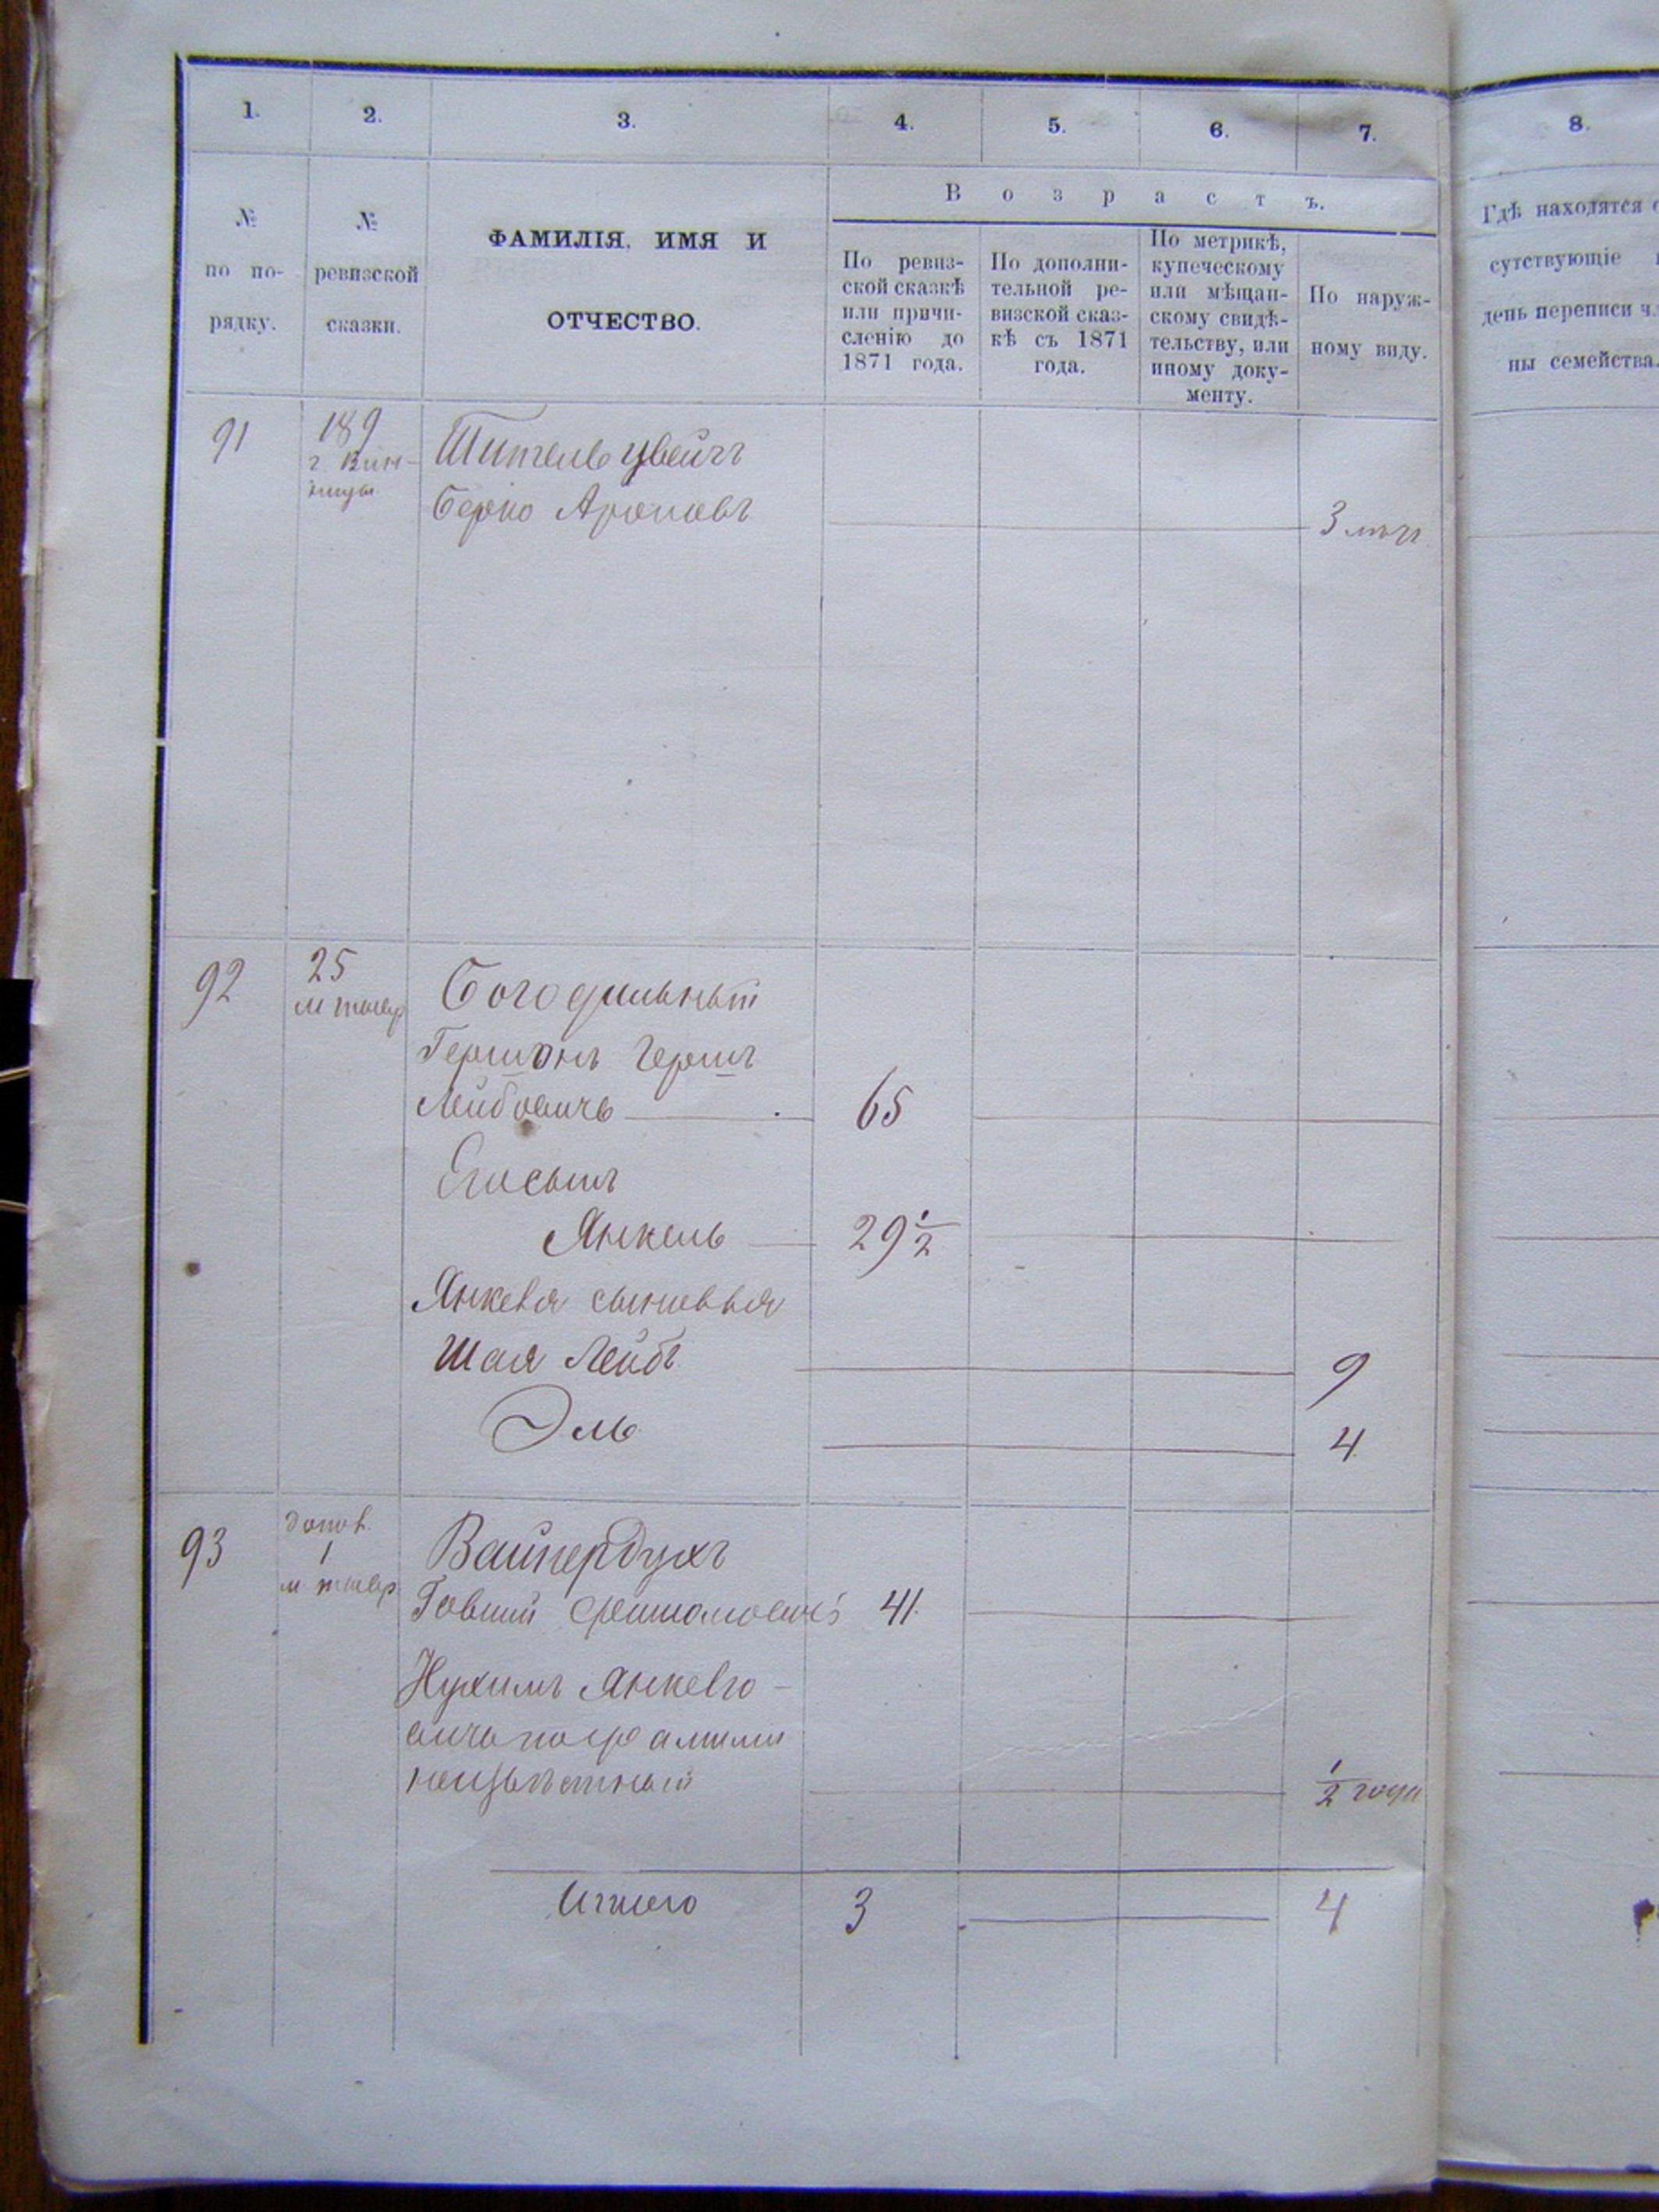 1. 2. 3. 4. 5. 6. 7. 8.
№ по по-рядку.
№ ревизской сказки.
ФАМИЛІЯ, ИМЯ И
ОТЧЕСТВО.
Возрастъ.
По ревиз-
ской сказкѣ
или причи-
сленію до
1871 года.
По дополни-
тельной ре-
визской сказ-
кѣ съ 1871
года.
По метрикѣ,
купеческому
или мѣщан-
скому свидѣ-
тельству, или
иному доку-
менту.
По наруж-
ному виду.
Гдѣ находятся
сутствующіе
день переписи
ны семейства.
91 189 Шительцвейгъ
г. Вин-
ницы
Берко Ароновъ 3 лѣтъ
92 25
м тывр
Гершонъ Гершъ
Лейбовичъ 65
Его сынъ
Янкель 29 1/2
Янкеля сыновья
Шая Лейбъ 9
Эль 4
93 допол.
1
м тывр
Нухимъ Янкелю-
вичъ по фамиліи
неизвѣстный 1/2 года
41
Итого 3 4